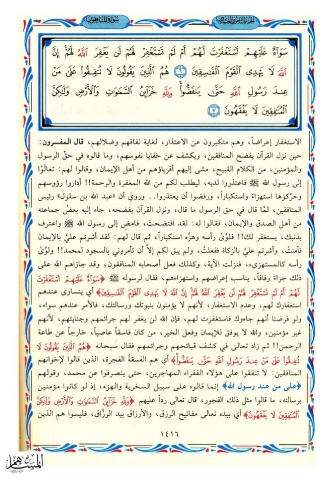 سَوَآءٌ عَلَيْهِمْ أَسْتَغْفَرْتَ لَهُمْ أَمْ لَمْ تَسْتَغْفِرْ لَهُمْ لَن يَغْفِرَ اللَّهُ لَهُمْ إِنَّ
اللَّهَ لَا يَهْدِى الْقَوْمَ الْفَٰسِقِينَ ٦ هُمُ الَّذِينَ يَقُولُونَ لَا تُنفِقُوا عَلَىٰ مَنْ
عِندَ رَسُولِ اللَّهِ حَتَّىٰ يَنفَضُّوا وَلِلَّهِ خَزَآئِنُ السَّمَٰوَٰتِ وَالْأَرْضِ وَلَٰكِنَّ
الْمُنَٰفِقِينَ لَا يَفْقَهُونَ ٧
الاستغفار إعراضاً، وهم متكبرون عن الاعتذار، لغاية نفاقهم وضلالهم، قال المفسرون:
حين نزل القرآن بفضح المنافقين، ويكشف عن خفايا نفوسهم، وما قالوه في حقّ الرسول
والمؤمنين، من الكلام القبيح، مشى إليهم أقرباؤهم من أهل الإيمان، وقالوا لهم: تعالَوْا
إلى رسول الله ﷺ فاعتذروا لديه، ليطلب لكم من الله المغفرة والرحمة!! أداروا رؤوسهم
وحرّكوها استهزاءً واستكباراً، ورفضوا أن يعتذروا.. وروي أن «عبد الله بن سلول» رئيس
المنافقين، لمَّا قال في حق الرسول ما قال، ونزل القرآن بفضحه، جاء إليه بعضُ جماعته
من أهل الصدق والإيمان، فقالوا له: لقد افتضحتَ، فامض إلى رسول الله ﷺ واعترف
بذنبك، يستغفر لك!! فلوَّى رأسه وهزَّه استكباراً، ثم قال لهم: لقد أشرتم عليَّ بالإيمان
فآمنتُ، وأشرتم عليَّ بالزكاة ففعلتُ، ولم يبق لكم إلاَّ أن تأمروني بالسجود لمحمد!! ولوَّى
رأسه كالمستهزىء، فنزلت الآية، وكذلك فعل أصحابه المنافقون، وقد جازاهم الله على
ذلك جزاءً وفاقاً، يناسب إعراضهم واستهزاءهم، فقال لرسوله ﷺ ﴿سَوَآءٌ عَلَيْهِمْ أَسْتَغْفَرْتَ
لَهُمْ أَمْ لَمْ تَسْتَغْفِرْ لَهُمْ لَن يَغْفِرَ اللَّهُ لَهُمْ إِنَّ اللَّهَ لَا يَهْدِى الْقَوْمَ الْفَٰسِقِينَ﴾ أي يتساوى عندهم
استغفارك لهم، وعدم الاستغفار، لأنهم لا يؤمنون بنبوتك ورسالتك، فالأمر عندهم سواء،
ولو فرضنا أنهم جاءوك فاستغفرت لهم، فإن الله لن يغفر لهم جرائمهم وجناياتهم، لأنهم
غير مؤمنين، والله لا يوفق للإيمان وفعل الخير، من كان فاسقاً عاصياً، خارجاً عن طاعة
الرحمن!! ثم زاد تعالى في كشف قبائحهم وجرائمهم فقال سبحانه ﴿هُمُ الَّذِينَ يَقُولُونَ لَا
تُنفِقُوا عَلَىٰ مَنْ عِندَ رَسُولِ اللَّهِ حَتَّىٰ يَنفَضُّوا﴾ أي هم الفسقةُ الفجرة، الذين قالوا لإخوانهم
المنافقين: لا تنفقوا على هؤلاء الفقراء المهاجرين، حتى ينصرفوا عن محمد، وقولهم
﴿على من عند رسول الله﴾ إنما قالوه على سبيل السخرية والهزء، إذ لو كانوا مؤمنين
برسالته، ما قالوا مثل ذلك الفجور، قال تعالى رداً عليهم ﴿وَلِلَّهِ خَزَآئِنُ السَّمَٰوَٰتِ وَالْأَرْضِ وَلَٰكِنَّ
الْمُنَٰفِقِينَ لَا يَفْقَهُونَ﴾ أي بيده تعالى مفاتيح الرزق، والأرزاق بيد الرزَّاق، فليسوا هم الذين
١٤١٦